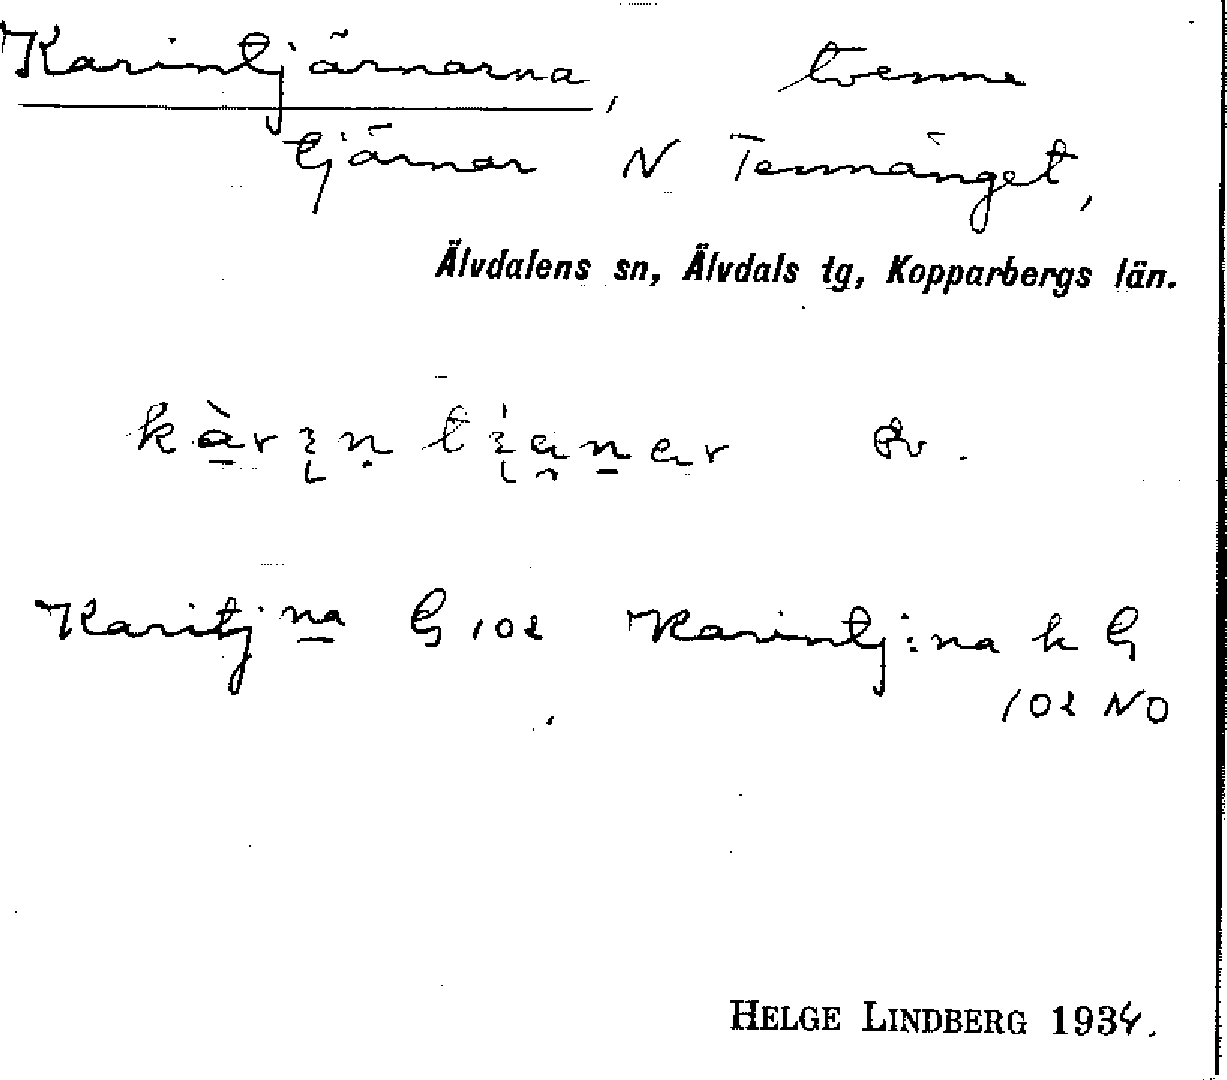 Karintjärnarna, tvenne
tjärnar N Tennänget,
Älvdalens sn, Älvdals tg, Kopparbergs län.
Karitj:na G 102 Karintj:na k G
102 NO
HELGE LINDBERG 1934.